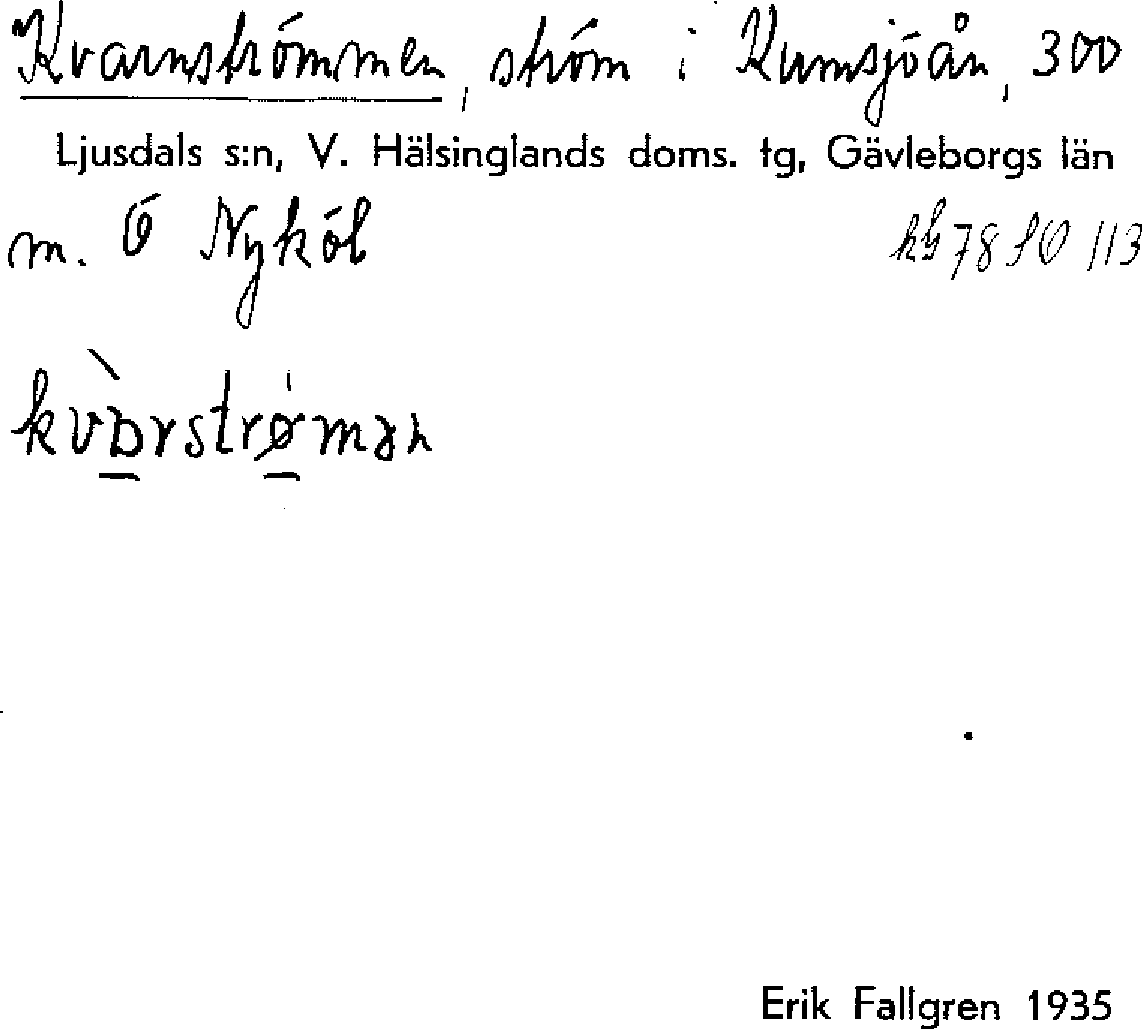 Kvarnströmmen, ström i Kumsjöån, 300
Ljusdals s:n, V. Hälsinglands doms. tg, Gävleborgs län
m. Ö Nyköl
kvɒ̀rstrømən
Erik Fallgren 1935